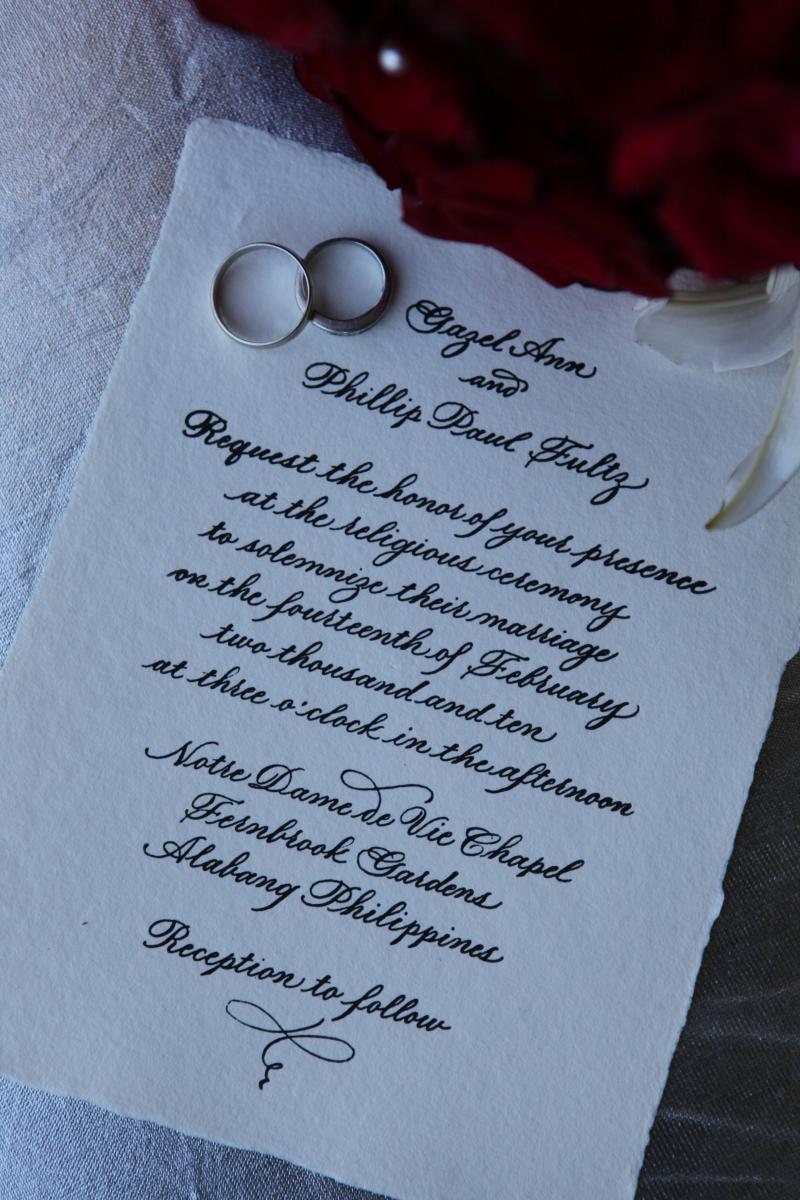 Gazel Ann
and
Phillip Paul Fultz
Request the honor of your presence
at the religious ceremony
to solemnize their marriage
on the fourteenth of February
two thousand and ten
at three o'clock in the afternoon
Notre Dame de Vie Chapel
Fernbrook Gardens
Alabang Philippines
Reception to follow